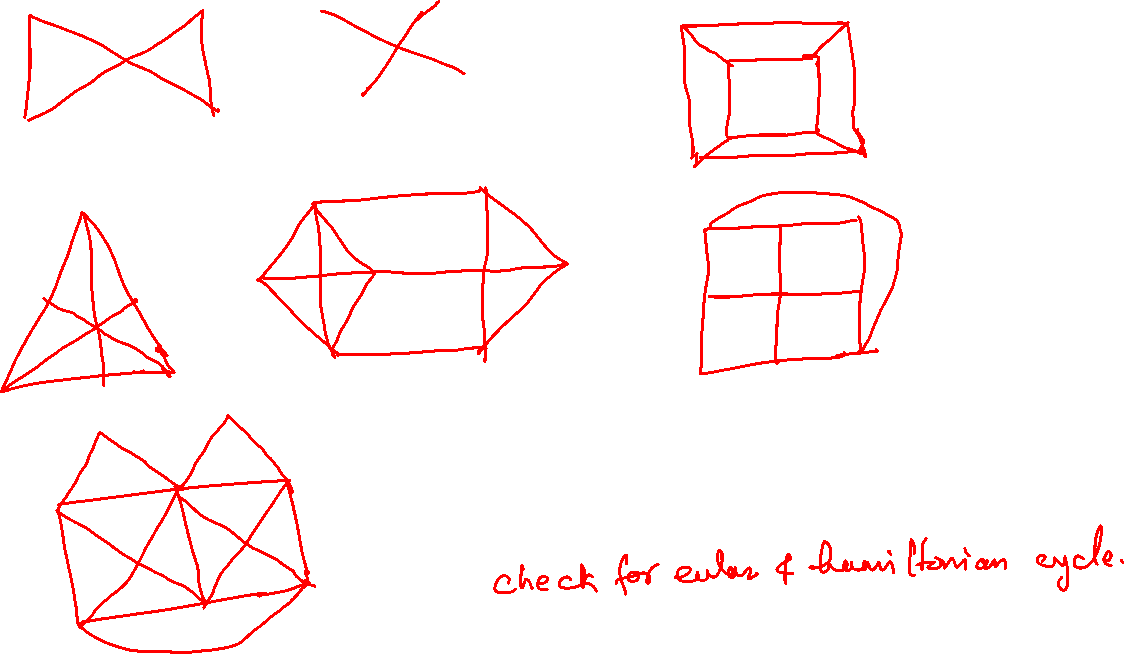 check for eular & hamiltonian cycle.